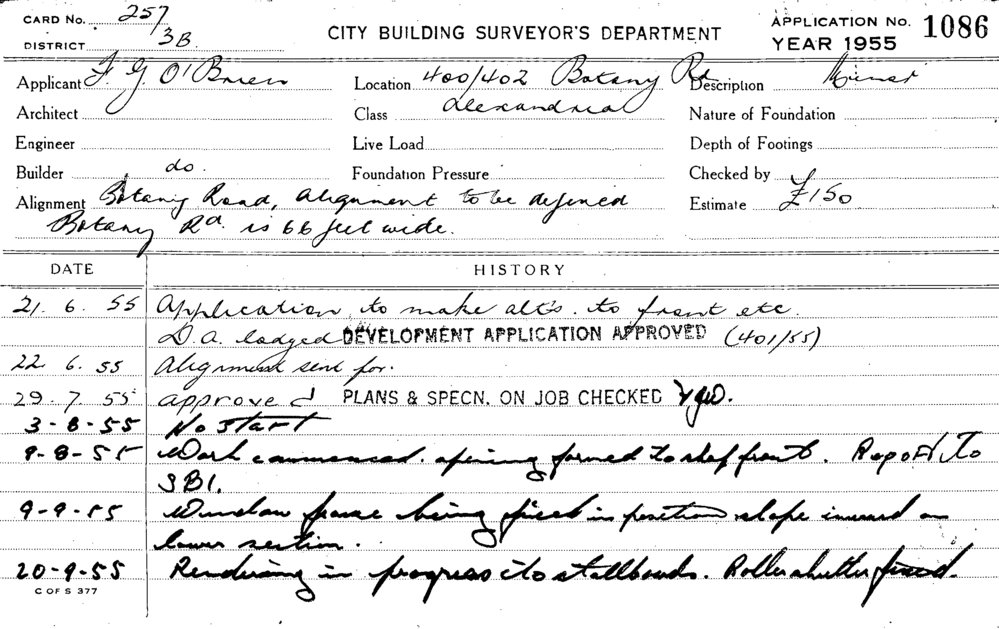 CARD No. 257
DISTRICT 3B
CITY BUILDING SURVEYOR'S DEPARTMENT
APPLICATION No. 1086
YEAR 1955
Applicant F. G O'Brien
Location 400/402 Botany Rd
Description Minor
Architect
Class Alexandria
Nature of Foundation
Engineer
Live Load
Depth of Footings
Builder do.
Foundation Pressure
Checked by
Alignment Botany Road, alignment to be defined
Estimate £150
Botany Rd. is 66 feet wide.
DATE HISTORY
21. 6. 55 Application to make alt's. to front etc.
D.A. lodged DEVELOPMENT APPLICATION APPROVED (401/55)
22. 6. 55 Alignment sent for.
29. 7. 55 approved PLANS & SPECN. ON JOB CHECKED
3-8-55 No start
9-8-55 Work commenced. opening formed to shop front. Report to
SBI.
9-9-55 Window frame being fixed in position slope inward on
lower section.
20-9-55 Rendering in progress to stallboards. Roller shutter fixed.
C OF S 377